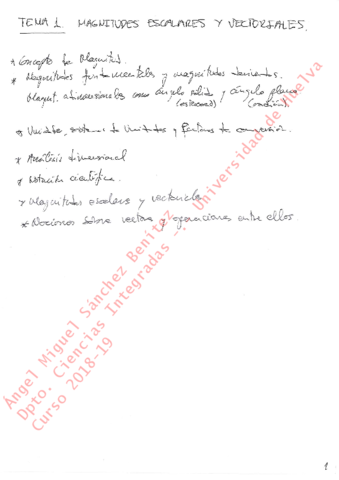 TEMA 1 MAGNITUDES ESCALARES Y VECTORIALES.
* Concepto de Magnitud.
* Magnitudes fundamentales y magnitudes derivadas.
Magnit. adimensionales como ángulo sólido y ángulo plano
(estereorad) (radián).
* Unidades, sistemas de Unidades y Factores de conversión.
* Análisis dimensional
* Notación científica.
* Magnitudes escalares y vectoriales
* Nociones sobre vectores y operaciones entre ellos.
Ángel Miguel Sánchez Benítez -- Universidad de Huelva
Dpto. Ciencias Integradas --
Curso 2018-19
1